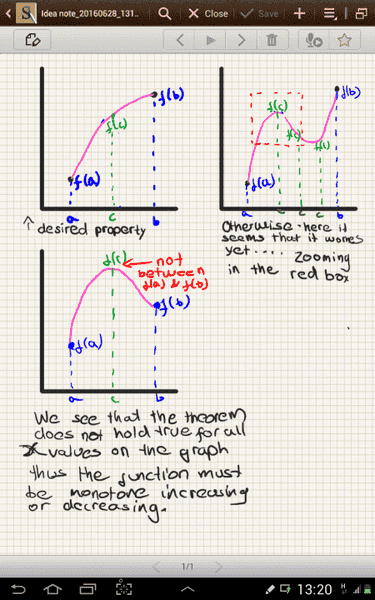 Idea note_20160628_131...
Close
Save
f(b)
f(c)
f(a)
a
c
b
↑ desired property
f(b)
f(c)
f(c)
f(c)
f(a)
a
c
c
c
b
Otherwise - here it
seems that it works
yet.... zooming
in the red box
f(c)
not
between
f(a) & f(b)
f(b)
f(a)
a
c
b
We see that the theorem
does not hold true for all
x values on the graph
thus the function must
be monotone increasing
or decreasing.
1/1
13:20